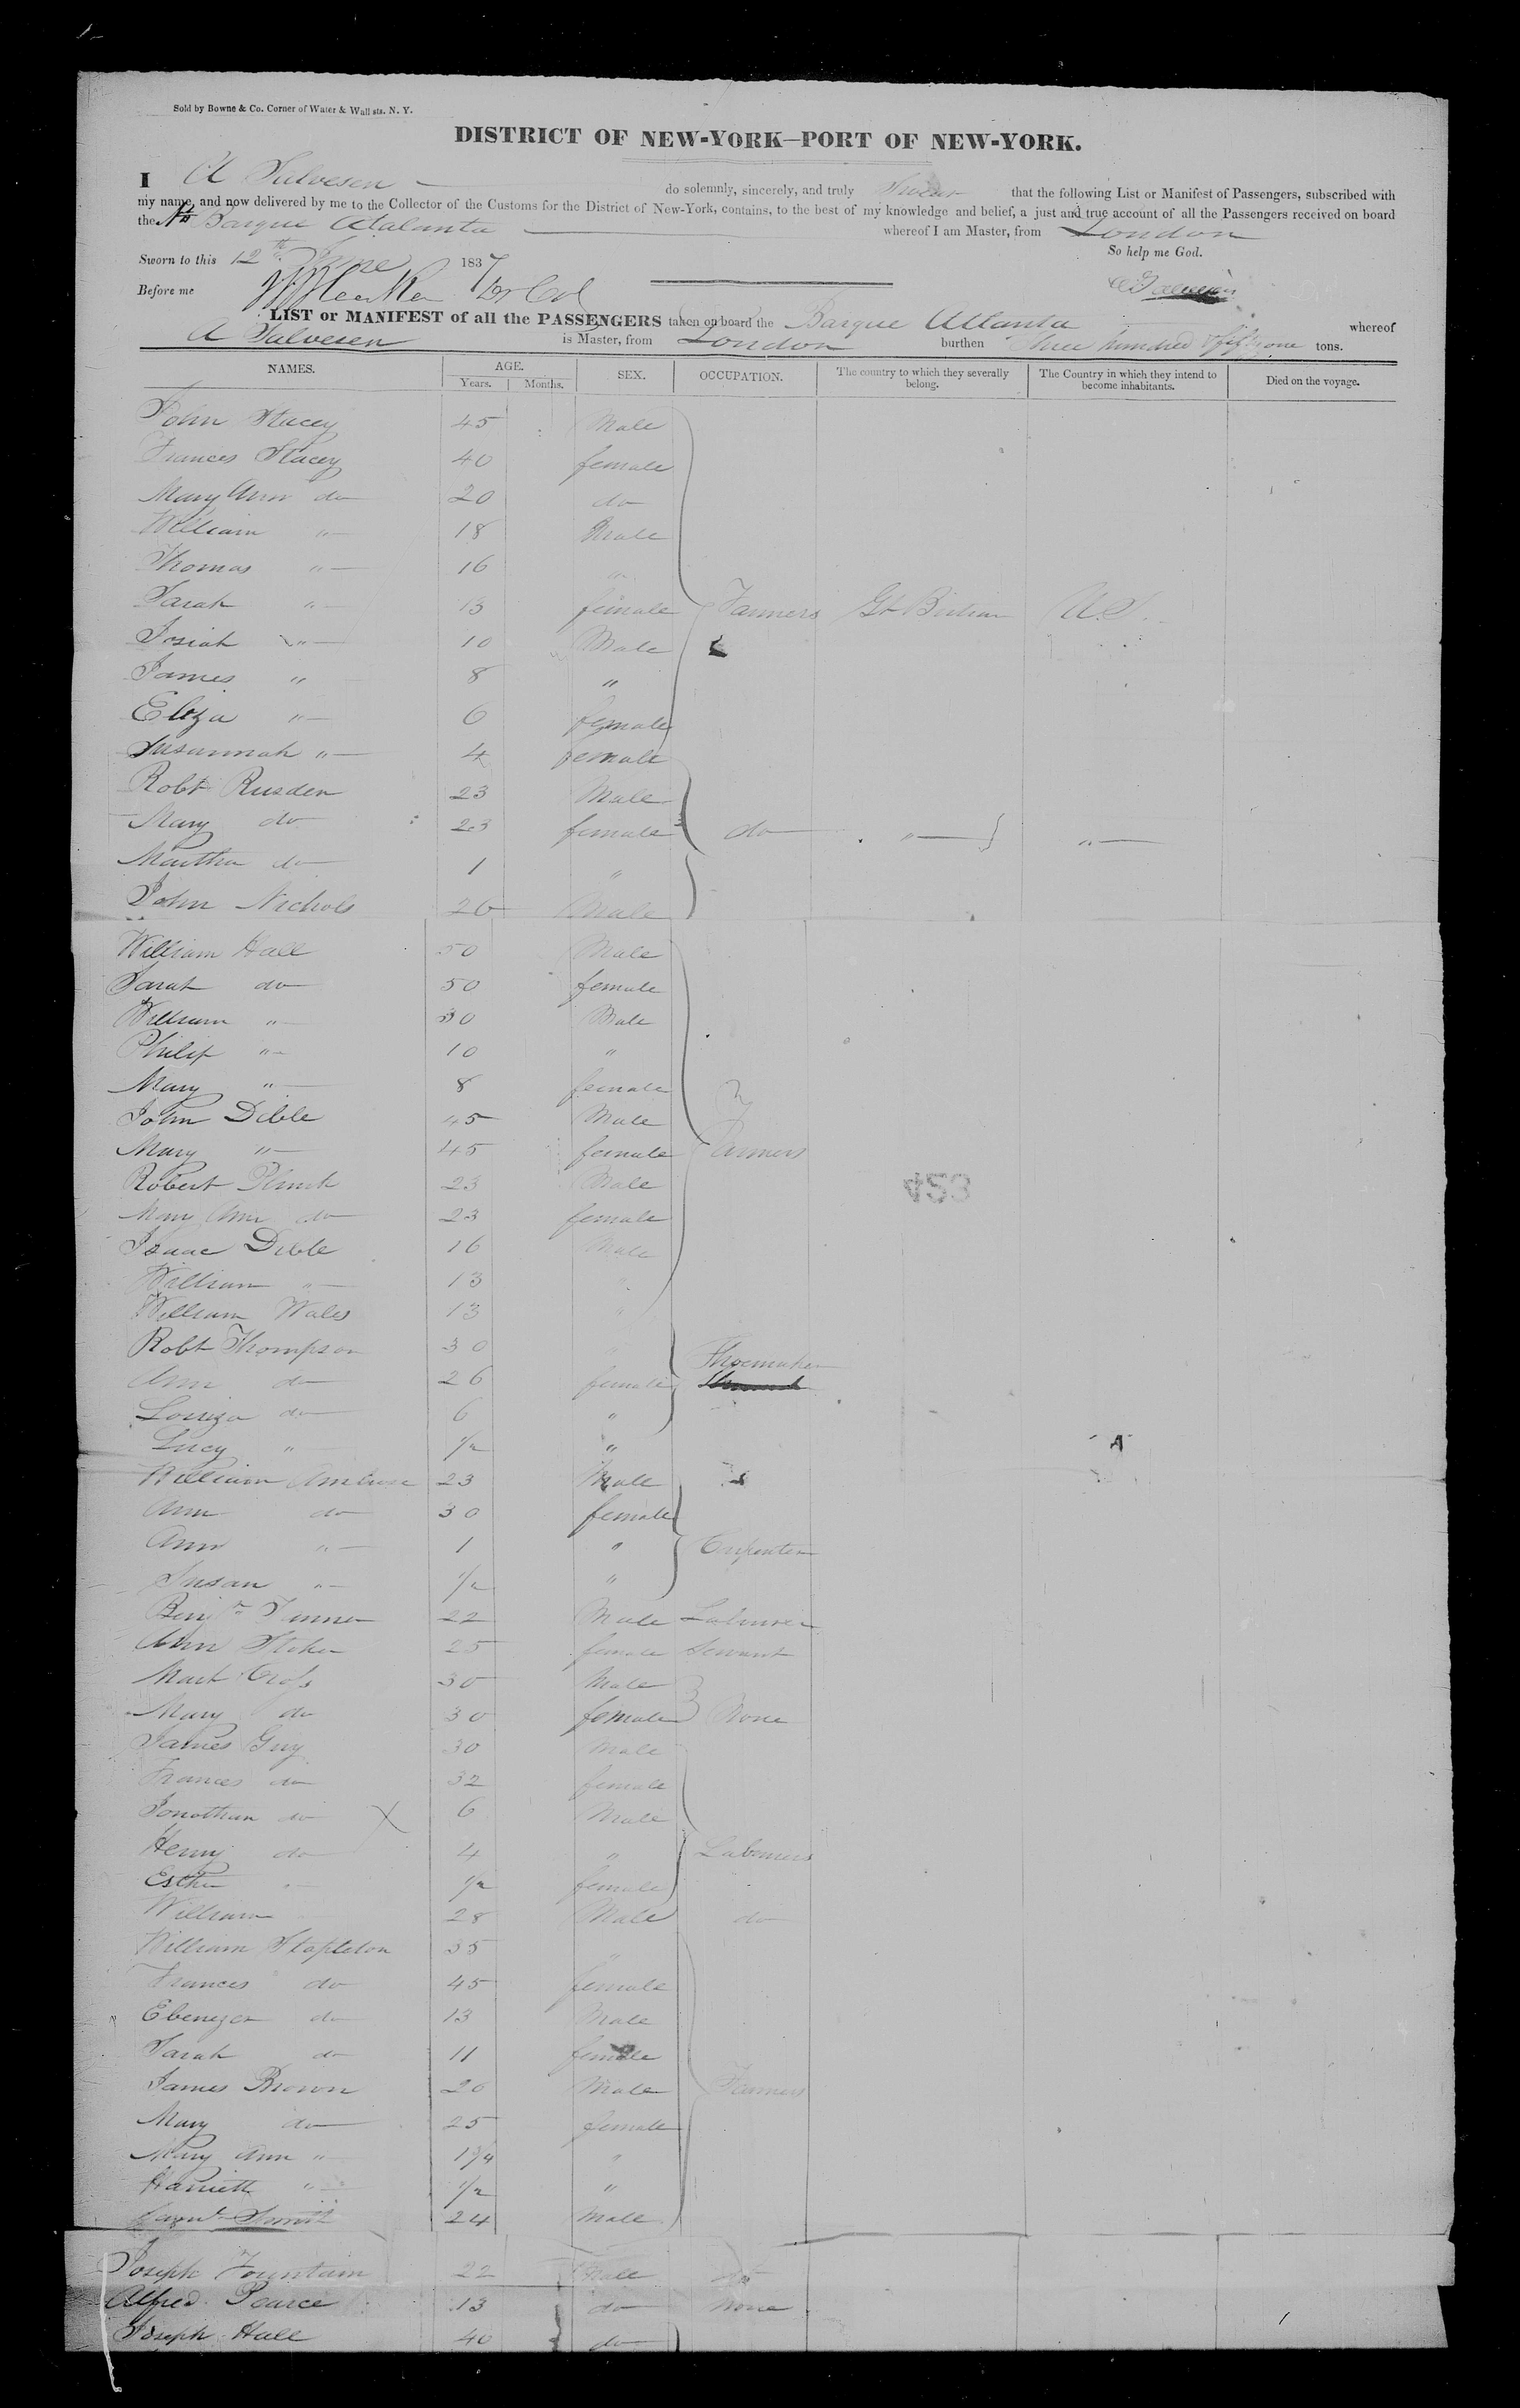 Sold by Bowne & Co. Corner of Water & Wall sts. N. Y.
DISTRICT OF NEW-YORK—PORT OF NEW-YORK.
I A Salvesen do solemnly, sincerely, and truly Swear that the following List or Manifest of Passengers, subscribed with
my name, and now delivered by me to the Collector of the Customs for the District of New-York, contains, to the best of my knowledge and belief, a just and true account of all the Passengers received on board
the Barque Atalanta whereof I am Master, from London
So help me God.
Sworn to this 12th June 1837
Before me
A Salvesen
LIST or MANIFEST of all the PASSENGERS taken on board the Barque Atlanta whereof
A Salvesen is Master, from London burthen Three hundred & fifty one tons.
NAMES. AGE. SEX. OCCUPATION. The country to which they severally belong. The Country in which they intend to become inhabitants. Died on the voyage.
Years. Months.
John Stacey 45 Male
Frances Stacey 40 female
Mary Ann do 20 do
William " 18 Male
Thomas " 16 "
Sarah " 13 female Farmers Gt Britain U.S.
Josiah " 10 Male
James " 8 "
Eliza " 6 female
Susannah " 4 female
Robt Rusden 23 Male
Mary do 23 female do " "
Martha do 1 "
John Nichols 26 Male
William Hall 50 Male
Sarah do 50 female
William " 30 Male
Philip " 10 "
Mary " 8 female
John Dible 45 Male
Mary " 45 female Farmers
Robert 23 Male
Mary Ann do 23 female
Isaac Dible 16 Male
William " 13 "
William Wales 13 "
Robt Thompson 30 " Shoemaker
Ann do 26 female
Louiza do 6 "
Lucy " 1/2 "
William Ambrose 23 Male
Ann do 30 female
Ann " 1 " Carpenter
Susan " 1/2 "
Benjn Tanner 22 Male Labourer
Ann Stoker 25 female Servant
Mark Cross 30 Male
Mary do 30 female None
James Guy 30 Male
Frances do 32 female
Jonathan do 6 Male
Henry do 4 " Labourers
Esther " 1/2 female
William 28 Male do
William Stapleton 35 "
Frances do 45 female
Ebenezer do 13 Male
Sarah do 11 female
James Brown 26 Male Farmers
Mary do 25 female
Mary Ann " 1 3/4 "
Harriett " 1/2 "
Smith 24 Male
Joseph Fountain 22 Male
Alfred Pearce 13 do none
Joseph Hall 40 do
453